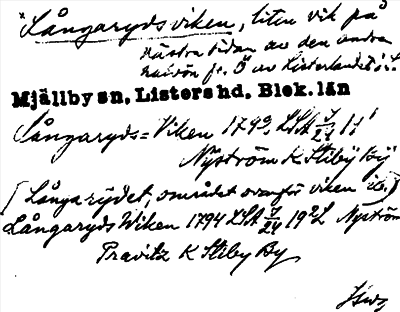 *Långarydsviken, liten vik på
västra sidan av den andra
halvön fr. Ö av Listerlandet i: L
Mjällby sn, Listers hd. Blek. län
Långaryds=Viken 1793 LSA 7/21 1:1
Nyström K Stiby By
(Långa rydet, området ovanför viken ib.)
Långaryds Wiken 1794 LSA 7/24 19:2 Nyström
Pravitz K Stiby By